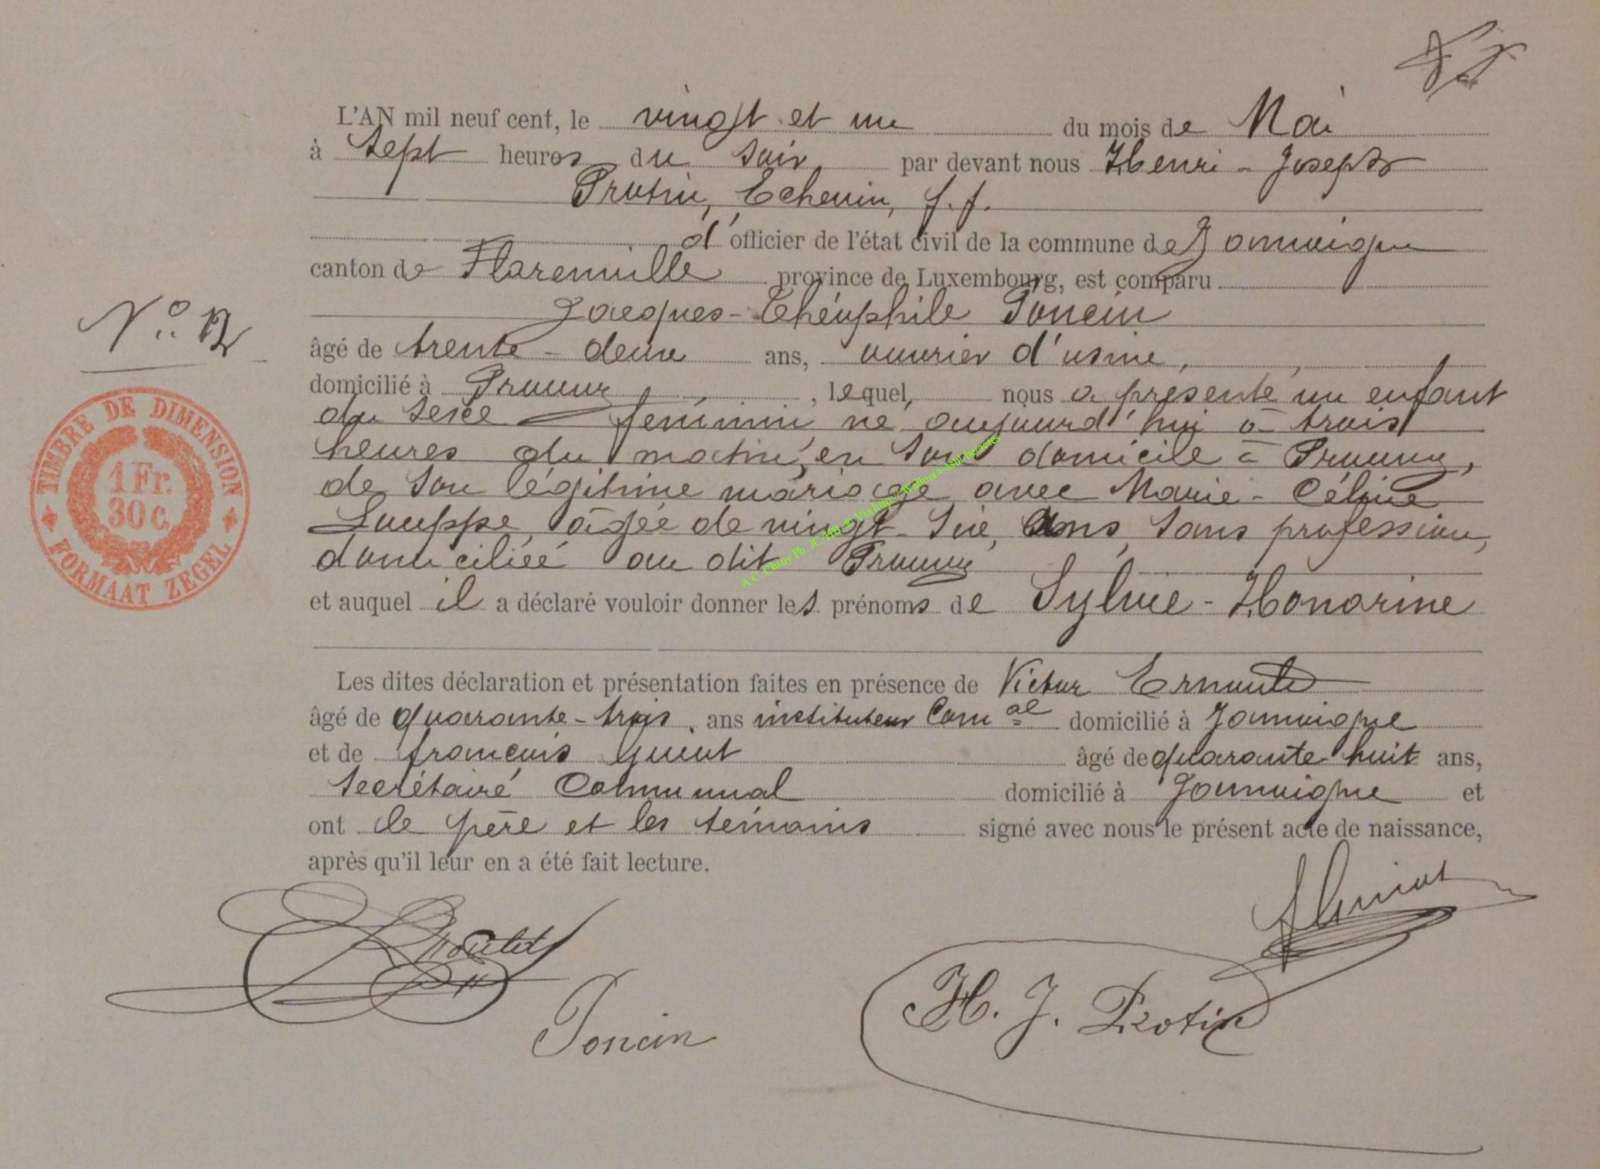 L'AN mil neuf cent, le vingt et un du mois de Mai
à Sept heures du soir par devant nous Henri - Joseph
Protin, Echevin, f.f.
d'officier de l'état civil de la commune de Jamoigne
canton de Florenville province de Luxembourg, est comparu
Jacques - Théophile Poncin
N° 12
âgé de trente - deux ans, ouvrier d'usine,
domicilié à Prouvy, lequel, nous a présenté un enfant
du sexe féminin né aujourd'hui à trois
heures du matin, en son domicile à Prouvy,
de son légitime mariage avec Marie - Céline
âgée de vingt - six, ans, sans profession,
domiciliée au dit Prouvy
et auquel il a déclaré vouloir donner les prénoms de Sylvie - Honorine
TIMBRE DE DIMENSION
1 Fr.
30 C.
FORMAAT ZEGEL
Les dites déclaration et présentation faites en présence de Victor
âgé de quarante - trois, ans instituteur Com al domicilié à Jamoigne
et de françois âgé de quarante huit ans,
Secrétaire Communal domicilié à Jamoigne et
ont le père et les témoins signé avec nous le présent acte de naissance,
après qu'il leur en a été fait lecture.
Poncin
H. J. Protin